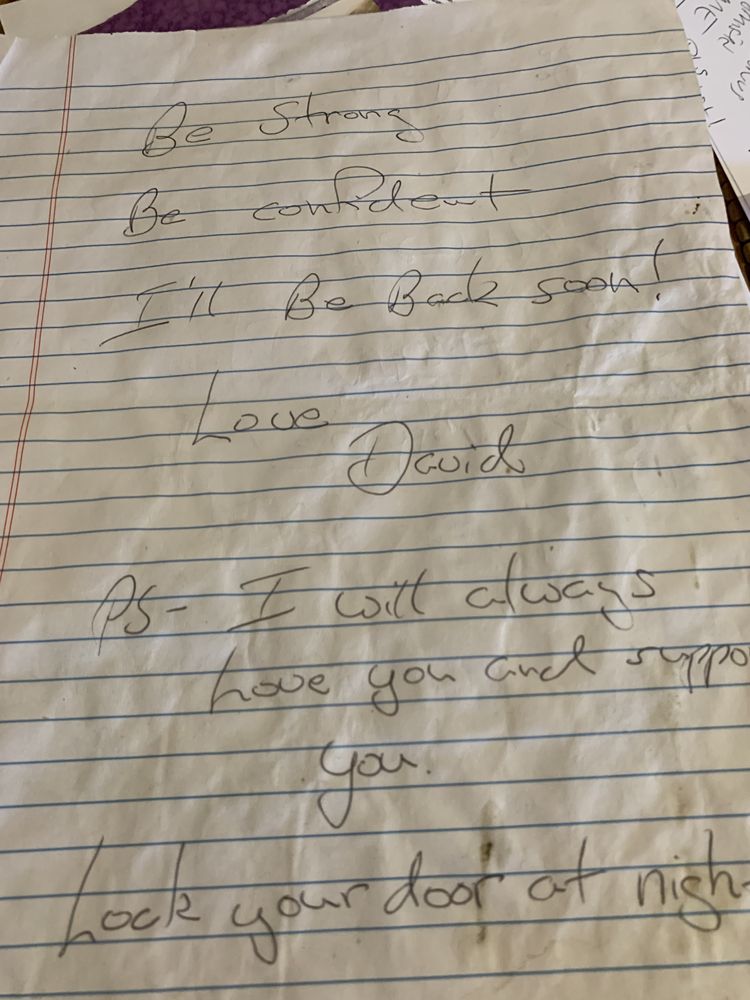 Be Strong
Be confident
I'll Be Back soon!
Love
David
PS- I will always
Love you and suppo
you.
Lock your door at nigh